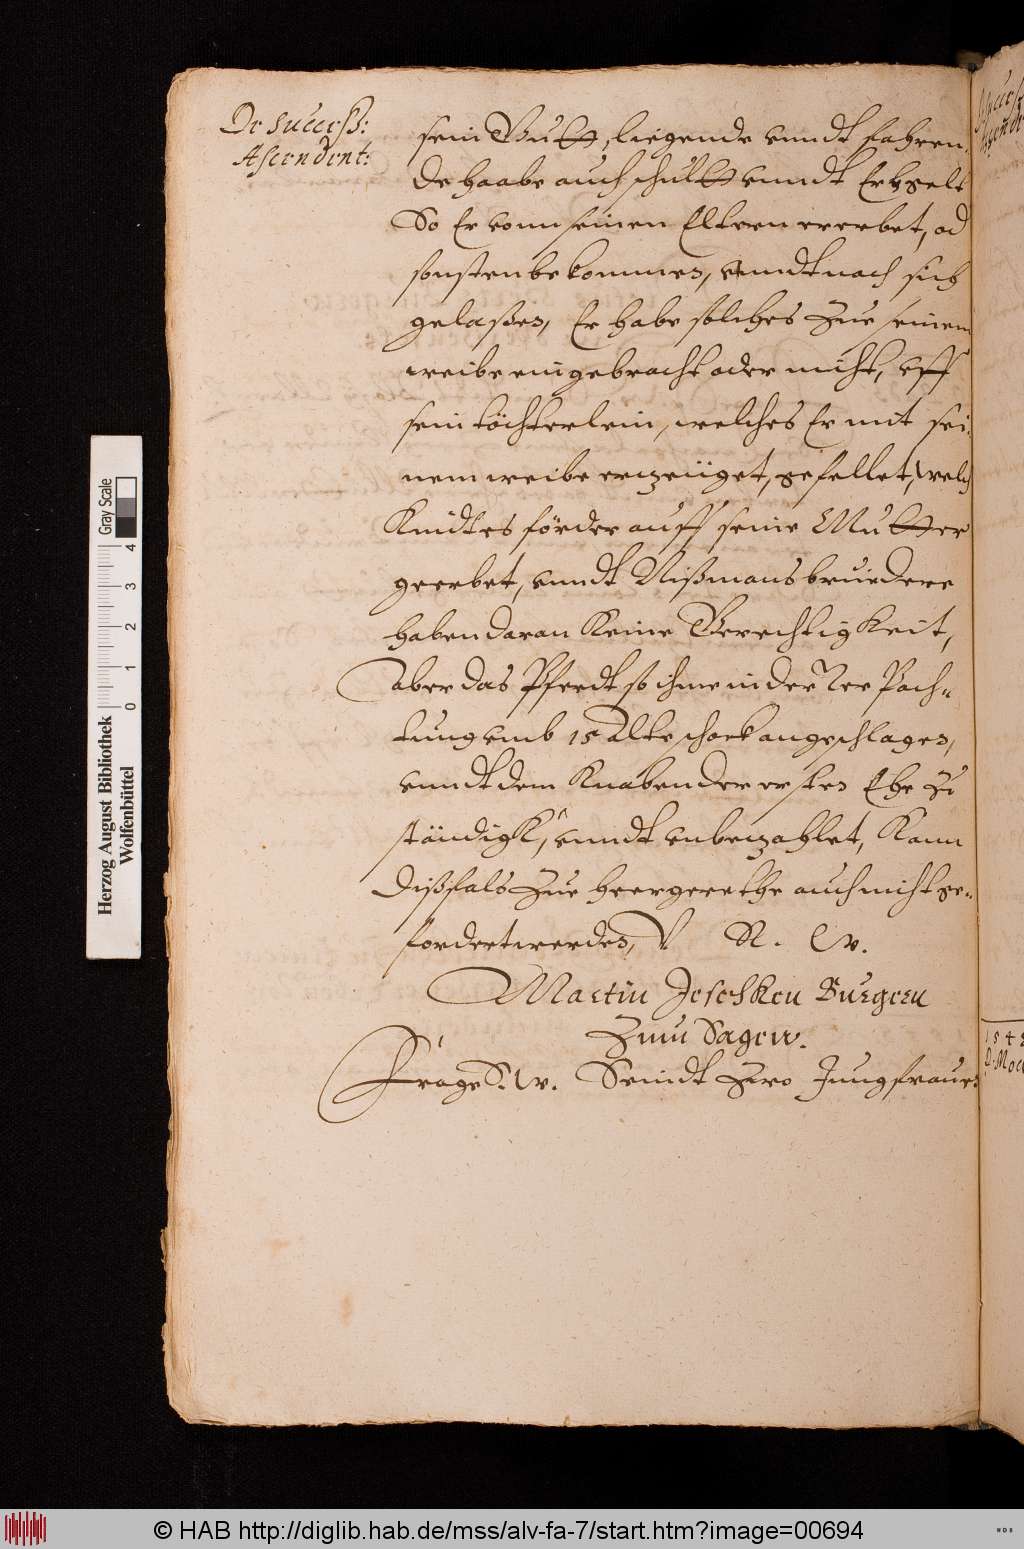 De Success:
Ascendent:
sein Gutt, liegende vnndt fahren-
de haabe auch schultt vnndt Erbgelt
So Er vonn seinen Eltern ererbet, od
sonsten bekommen, vnndt nach sich
gelaßen, Er habe solches zue seinem
weibe eingebracht oder nicht, vff
sein töchterlein, welches Er mit sei-
nem weibe erzeüget, gefellet, welch
Kindt es förder auff seine Mutter
geerbet, vnndt Nißmans bruedere
haben daran Keine Gerechtigkeit,
aber das Pferdt so ihme in der Pach-
tung vmb 15 alte schock angeschlagen,
vnndt dem Knaben der ersten Ehe zu
ständigk, vnndt vnbezahlet, Kann
dißfals zue heergerethe auch nicht ge-
fordert werden, V. R. W.
Martin Jeschken Burgern
Zuu Sagew.
Frage S. W. Seindt zwo Jungfrauen
1542
D. Moc
0 1 2 3 4
Gray Scale
Herzog August Bibliothek
Wolfenbüttel
© HAB http://diglib.hab.de/mss/alv-fa-7/start.htm?image=00694